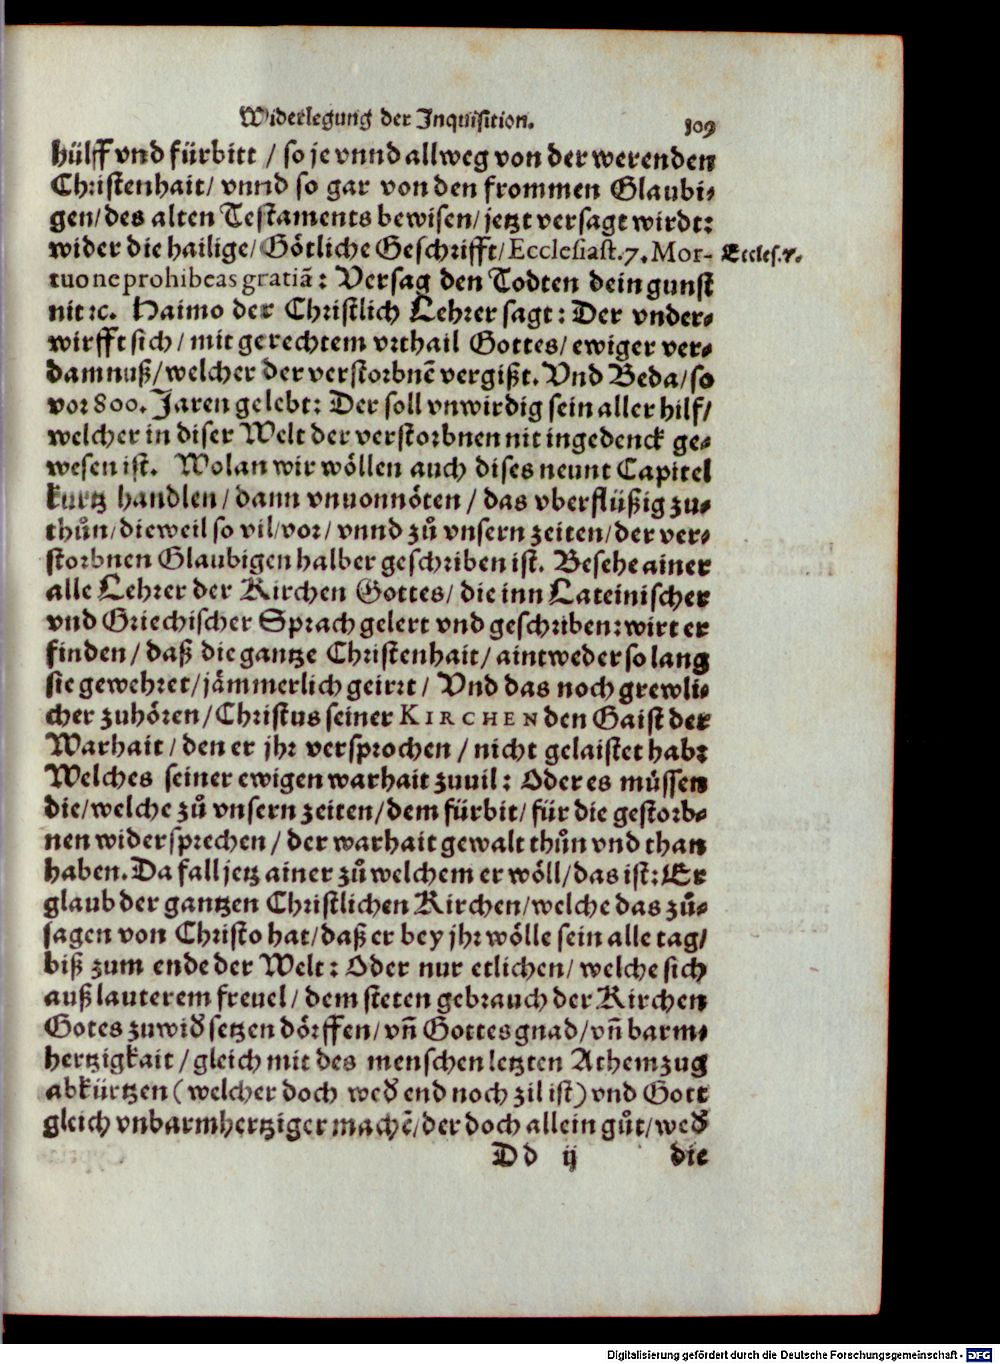 Widerlegung der Inquisition. 109
hülff vnd fürbitt / so je vnnd allweg von der werenden
Christenhait / vnnd so gar von den frommen Glaubi⸗
gen / des alten Testaments bewisen / jetzt versagt wirdt:
wider die hailige / Götliche Geschrifft / Ecclesiast. 7. Mor-
Eccles. 7.
tuo ne prohibeas gratiā: Versag den Todten dein gunst
nit ꝛc. Haimo der Christlich Lehrer sagt: Der vnder⸗
wirfft sich / mit gerechtem vrthail Gottes / ewiger ver⸗
damnuß / welcher der verstorbnē vergißt. Vnd Beda / so
vor 800. Jaren gelebt: Der soll vnwirdig sein aller hilf /
welcher in diser Welt der verstorbnen nit ingedenck ge⸗
wesen ist. Wolan wir wöllen auch dises neunt Capitel
kurtz handlen / dann vnuonnöten / das vberflüßig zu⸗
thůn / dieweil so vil / vor / vnnd zů vnsern zeiten / der ver⸗
storbnen Glaubigen halber geschriben ist. Besehe ainer
alle Lehrer der Kirchen Gottes / die inn Lateinischer
vnd Griechischer Sprach gelert vnd geschriben: wirt er
finden / daß die gantze Christenhait / aintweder so lang
sie gewehret / jämmerlich geirrt / Vnd das noch grewli⸗
cher zuhören / Christus seiner KIRCHEN den Gaist der
Warhait / den er jhr versprochen / nicht gelaistet hab:
Welches seiner ewigen warhait zuuil: Oder es müssen
die / welche zů vnsern zeiten / dem fürbit / für die gestorb⸗
nen widersprechen / der warhait gewalt thůn vnd than
haben. Da fall jetz ainer zů welchem er wöll / das ist: Er
glaub der gantzen Christlichen Kirchen / welche das zů⸗
sagen von Christo hat / daß er bey jhr wölle sein alle tag /
biß zum ende der Welt: Oder nur etlichen / welche sich
auß lauterem freuel / dem steten gebrauch der Kirchen
Gotes zuwid setzen dörffen / vñ Gottes gnad / vñ barm⸗
hertzigkait / gleich mit des menschen letzten Athemzug
abkürtzen (welcher doch wed end noch zil ist) vnd Gott
gleich vnbarmhertziger machē / der doch allein gůt / wed
Dd ij die
Digitalisierung gefördert durch die Deutsche Forschungsgemeinschaft - DFG